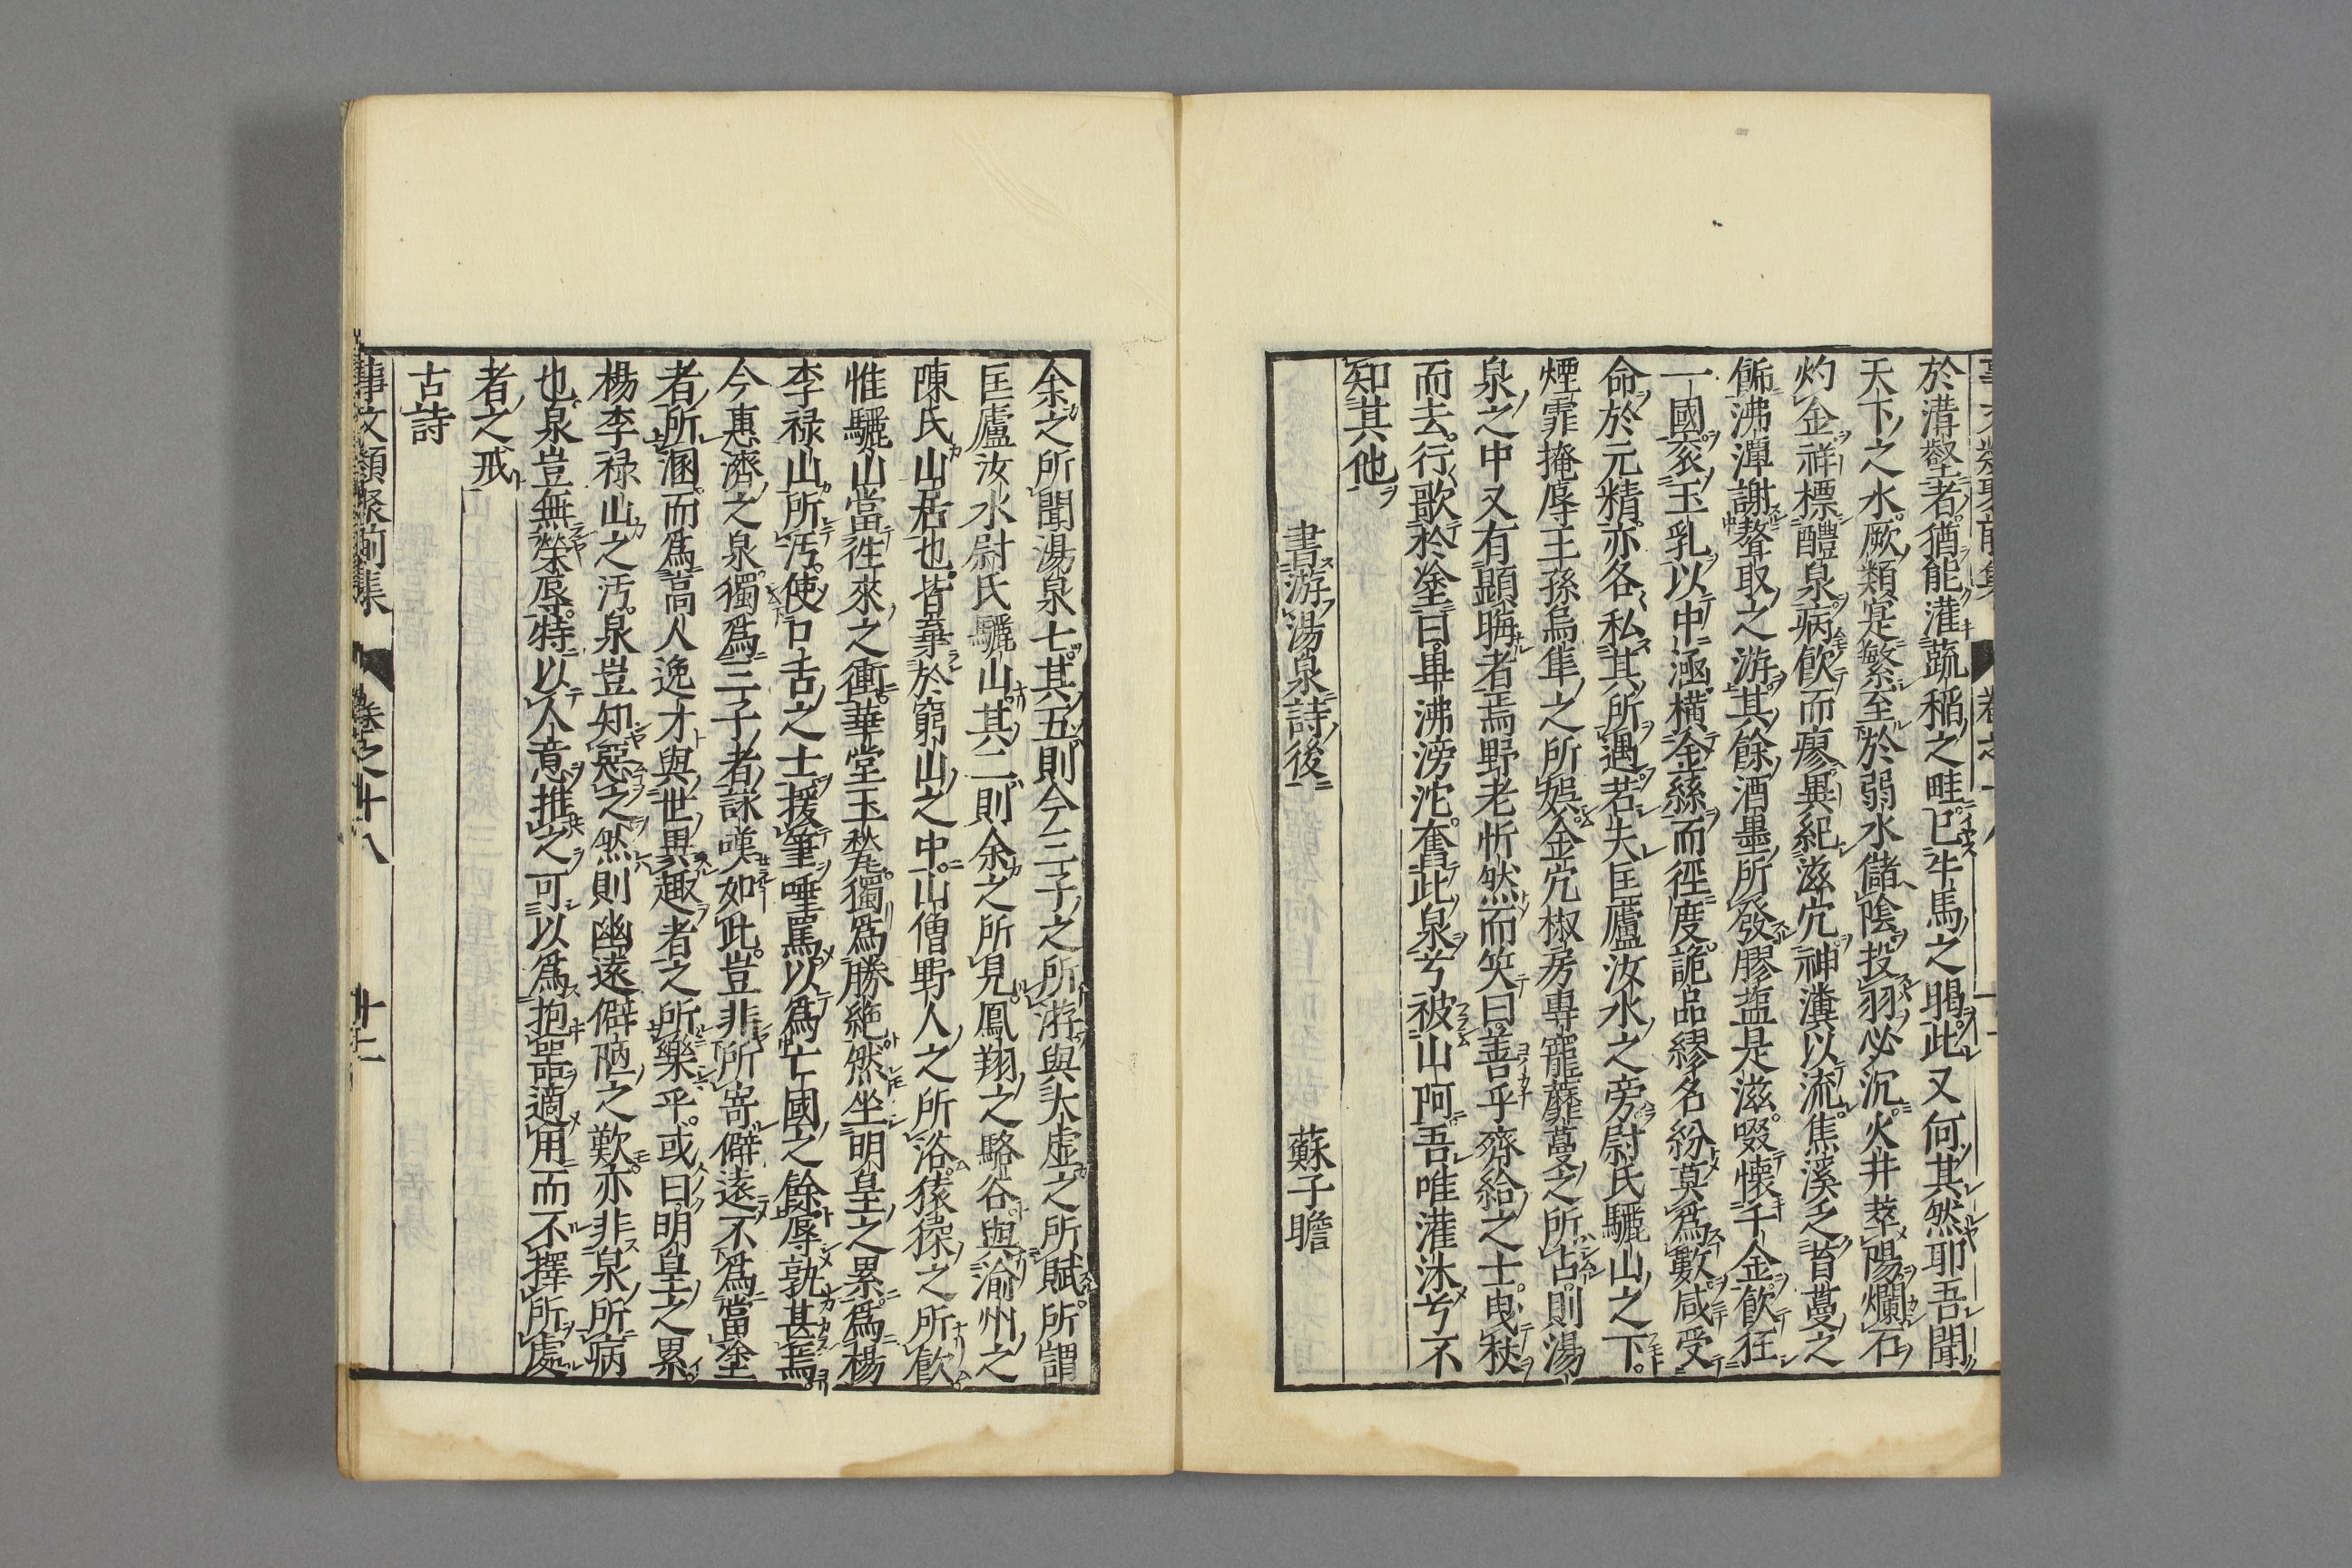 於溝壑者猶能灌蔬稲之畦已牛馬之暍此又何其然耶吾聞
天下之水厥類寔繁至於弱水儲陰投羽必沉火井萃陽爛石
灼金祥標醴泉病飲而瘳異紀滋穴神瀵以流焦溪乏苜蔓之
餙沸潭謝鼇取之游其餘酒墨所發膠盬是滋啜懐千金飲狂
一國亥玉乳以中涵橫金絲而徑度詭品繆名紛莫爲數咸受
命於元精亦各私其所遇若失匡廬汝水之旁尉氏驪山之下
煙霏掩辱王孫烏隼之所娯金穴椒房專寵蘼蔓之所占則湯
泉之中又有顕晦者焉野老忻然而笑曰善乎齊給之士曳㧞
而去行歌於塗曰畢沸滂沱奮此泉兮被山阿吾唯灌沐兮不
知其他
書游湯泉詩後 蘇子瞻
余之所聞湯泉七其五則今三子之所游與太虚之所賦所謂
匡廬汝水尉氏驪山其二則余之所見鳳翔之駱谷與渝州之
陳氏山居也皆棄於窮山之中山僧野人之所浴猿猱之所飲
惟驪山當徃來之衝華堂玉甃獨爲勝絶然坐明皇之累爲楊
李禄山所汚使口舌之士援筆唾罵以爲亡國之餘辱孰甚焉
今惠濟之泉獨爲三子者詠嘆如此豈非所寄僻遠不爲當塗
者所溷而爲高人逸才與世異趣者之所樂乎或曰明皇之累
楊李禄山之汚泉豈知惡之然則幽遠僻陋之歎亦非泉所病
也泉豈無榮辱特以人意推之可以爲抱噐適用而不擇所處
者之戒
古詩
事文類聚前集 卷之十八 十二